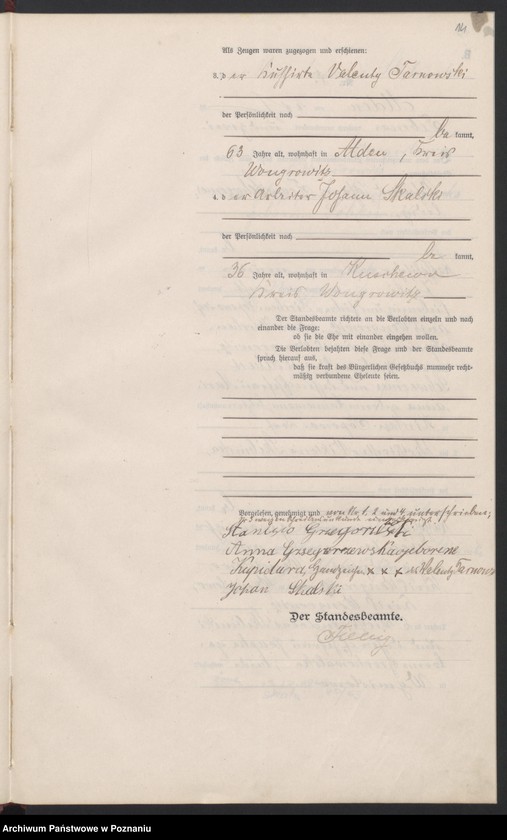 141
Als Zeugen waren zugezogen und erschienen:
3. der Valenty Tarnowski
der Persönlichkeit nach
be kannt,
63 Jahre alt, wohnhaft in Alden, Kreis
Wongrowitz
4. der Arbeiter Johann Skalski
der Persönlichkeit nach
be kannt,
36 Jahre alt, wohnhaft in
Kreis Wongrowitz
Der Standesbeamte richtete an die Verlobten einzeln und nach
einander die Frage:
ob sie die Ehe mit einander eingehen wollen.
Die Verlobten bejahten diese Frage und der Standesbeamte
sprach hierauf aus,
daß sie kraft des Bürgerlichen Gesetzbuchs nunmehr recht-
mäßig verbundene Eheleute seien.
Vorgelesen, genehmigt und von No 1. 2 und 4 unterschrieben;
Anna geborene
Kapidura, Handzeichen x x x Valenty Tarnowski
Johan Skalski
Der Standesbeamte.
Archiwum Państwowe w Poznaniu